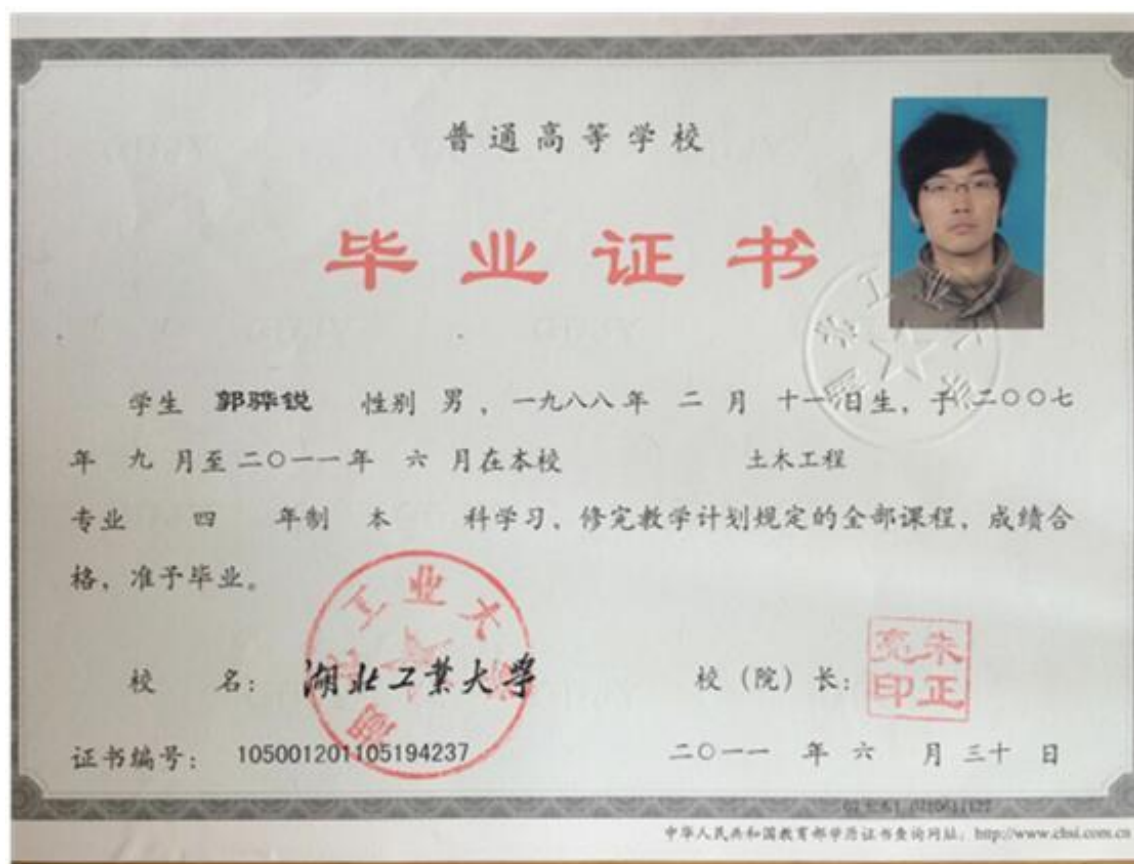 普通高等学校
毕业证书
学生 郭骅锐 性别 男，一九八八年 二 月 十一日生，于二〇〇七
年 九 月至二〇一一年 六 月在本校 土木工程
专业 四 年制 本 科学习，修完教学计划规定的全部课程，成绩合
格，准予毕业。
校 名：湖北工业大学 校（院）长：朱正亮印
证书编号：105001201105194237 二〇一一 年 六 月 三十 日
中华人民共和国教育部学历证书查询网址：http://www.chsi.com.cn